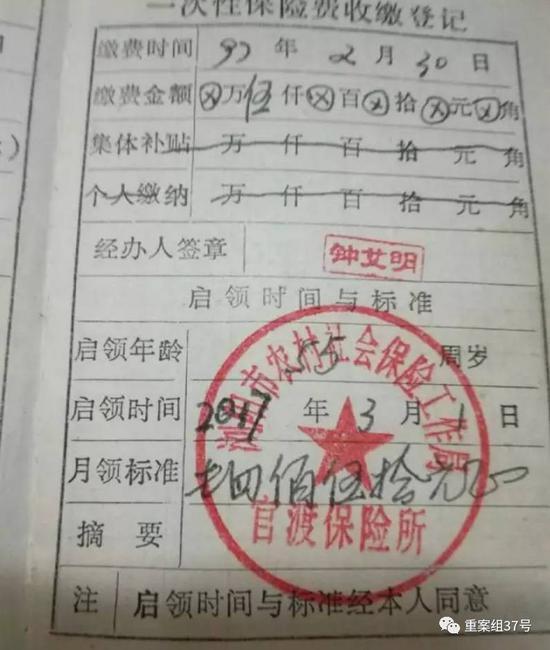 一次性保险费收缴登记
缴费时间 97 年 2 月 30 日
缴费金额 ⊗万伍仟⊗百⊗拾⊗元⊗角
集体补贴 万 仟 百 拾 元 角
个人缴纳 万 仟 百 拾 元 角
经办人签章 钟艾明
启领时间与标准
启领年龄 55 周岁
浏阳市农村社会保险工作局
启领时间 2017 年 3 月 1 日
月领标准 四佰伍拾元正
官渡保险所
摘 要
注 启领时间与标准经本人同意
重案组37号